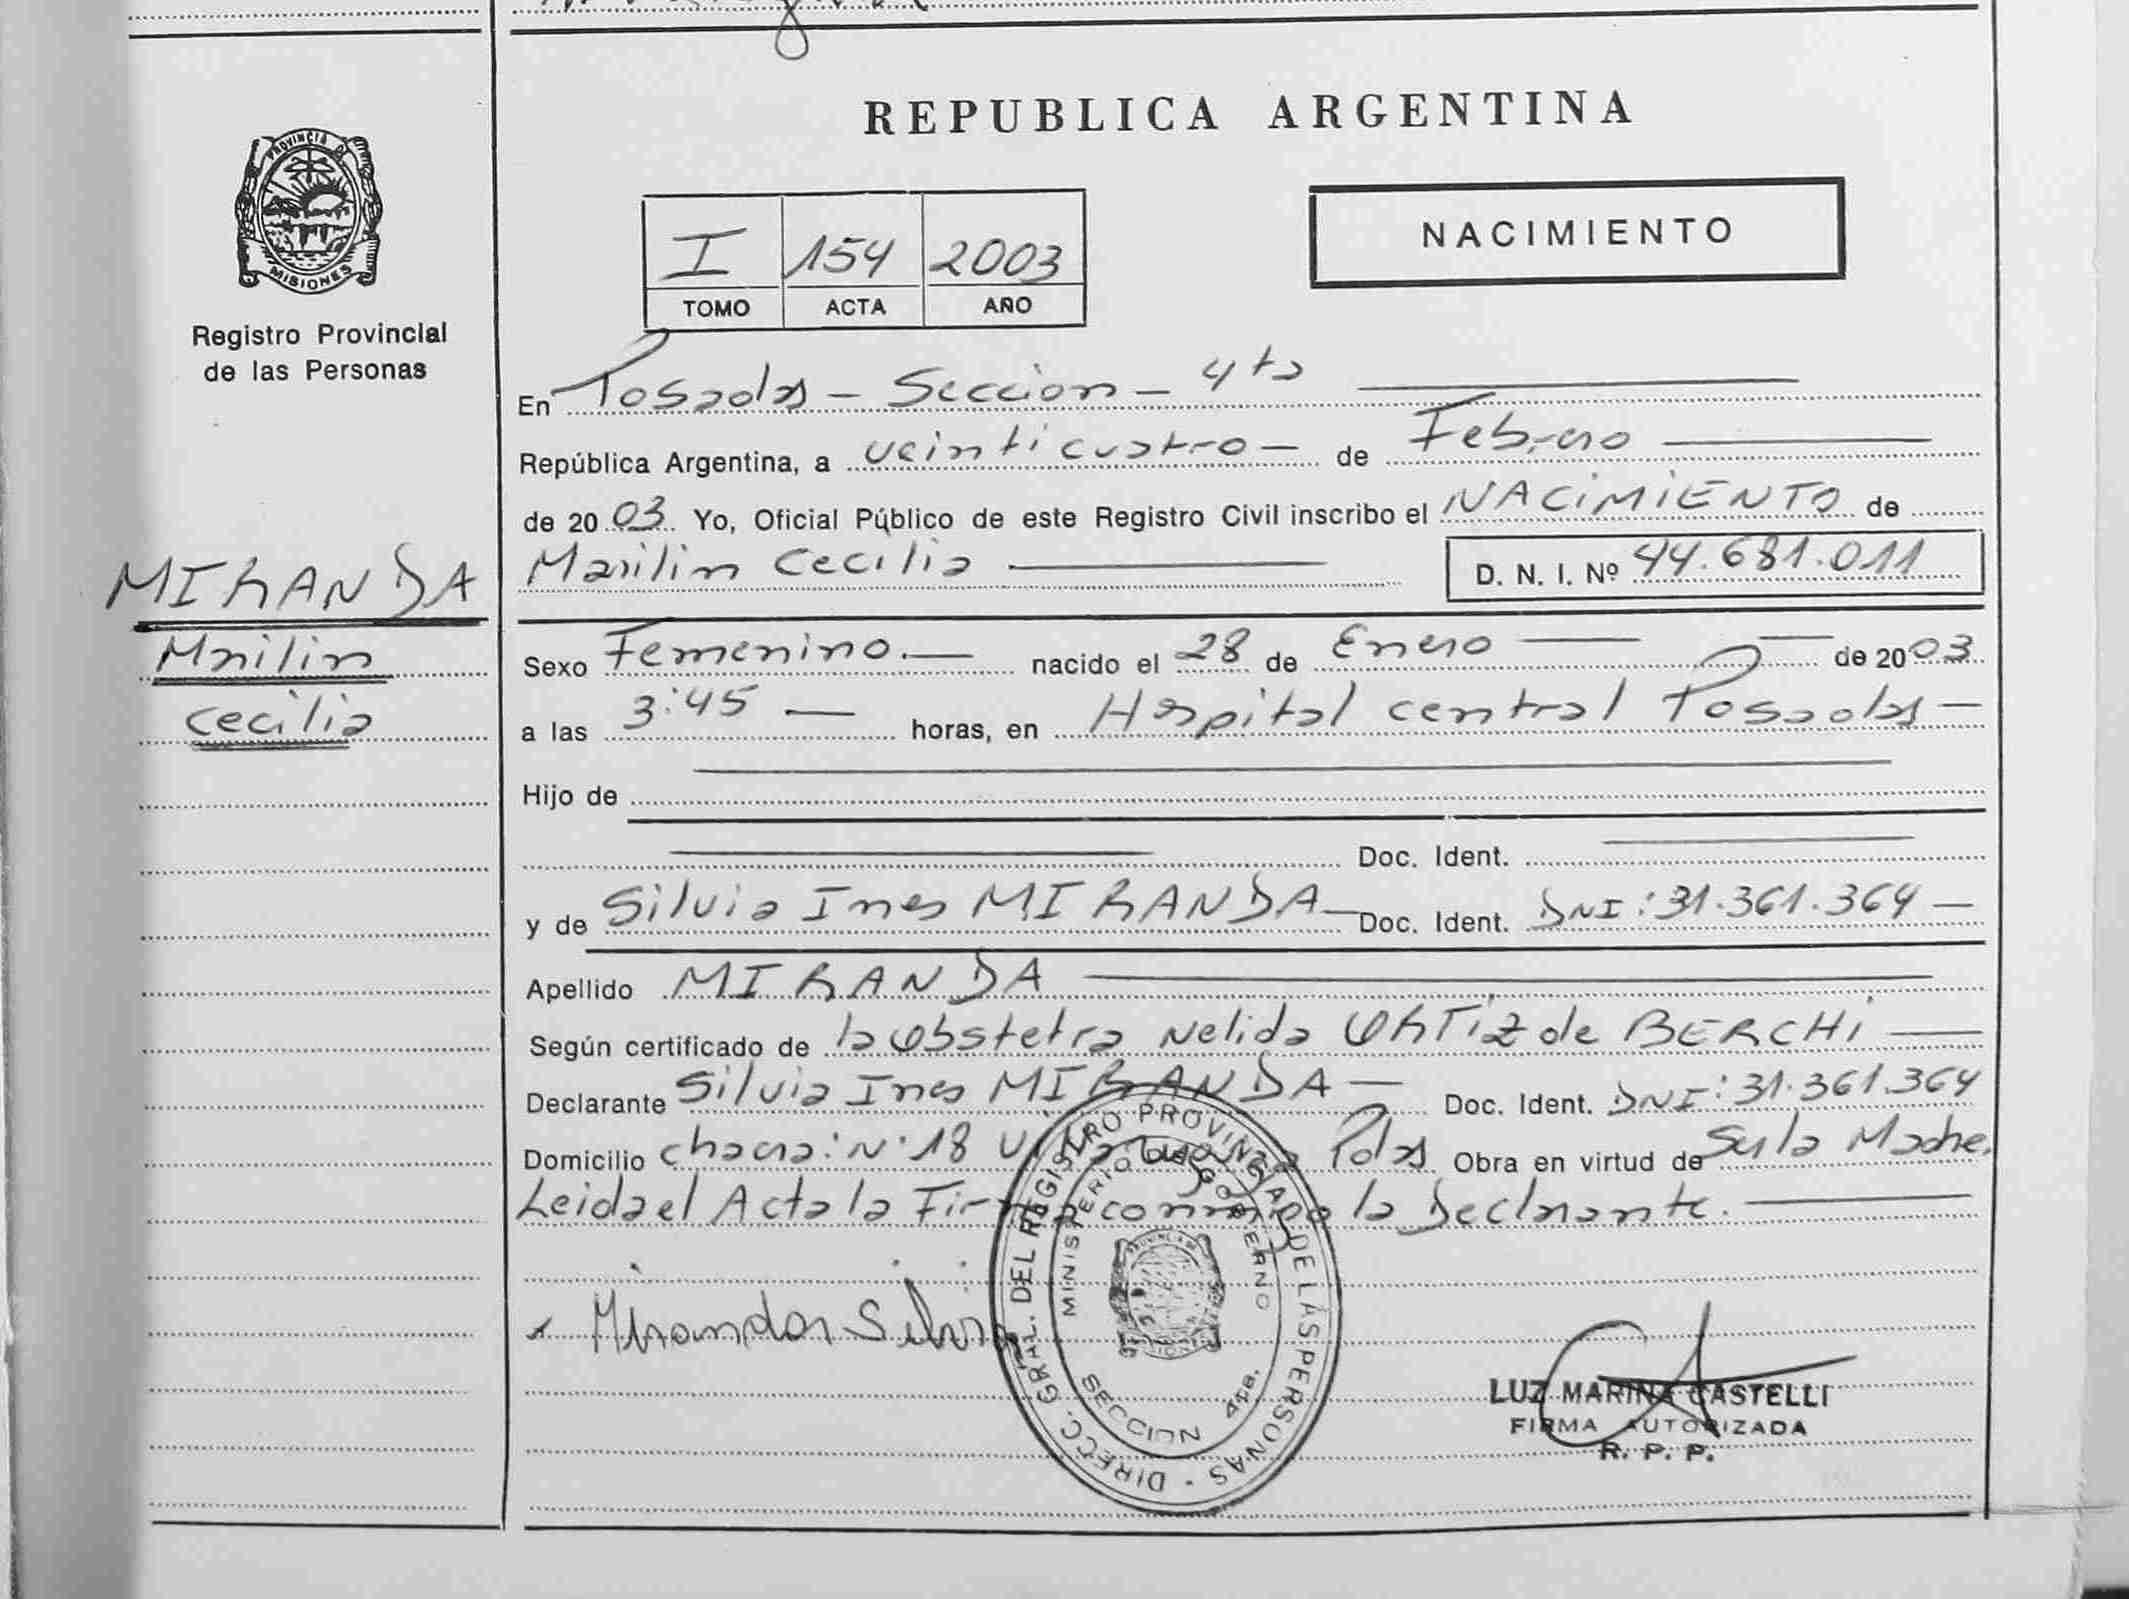 REPUBLICA ARGENTINA
PROVINCIA DE
MISIONES
Registro Provincial
de las Personas
NACIMIENTO
I 154 2003
TOMO ACTA AÑO
En Posadas - Seccion - 4ta
República Argentina, a veinticuatro - de Febrero
de 2003 Yo, Oficial Público de este Registro Civil inscribo el NACIMIENTO de
MIRANDA
Marilin
Cecilia
Marilin Cecilia D. N. I. Nº 44.681.011
Sexo Femenino.- nacido el 28 de Enero de 2003
a las 3:45 - horas, en Hospital central Posadas -
Hijo de
Doc. Ident.
y de Silvia Ines MIRANDA - Doc. Ident. DNI: 31.361.364 -
Apellido MIRANDA
Según certificado de la Obstetra Nelida ORTIZ de BERCHI
Declarante Silvia Ines MIRANDA - Doc. Ident. DNI: 31.361.364
Domicilio chacra: N° 18 Pdas Obra en virtud de Ser la Madre.
Leida el Acta la Firma conmigo la Declarante.
x Miranda Silvia
DIRECC. GRAL. DEL REGISTRO PROVINCIAL DE LAS PERSONAS
MINISTERIO DE GOBIERNO
SECCION 4ta.
LUZ MARINA CASTELLI
FIRMA AUTORIZADA
R. P. P.